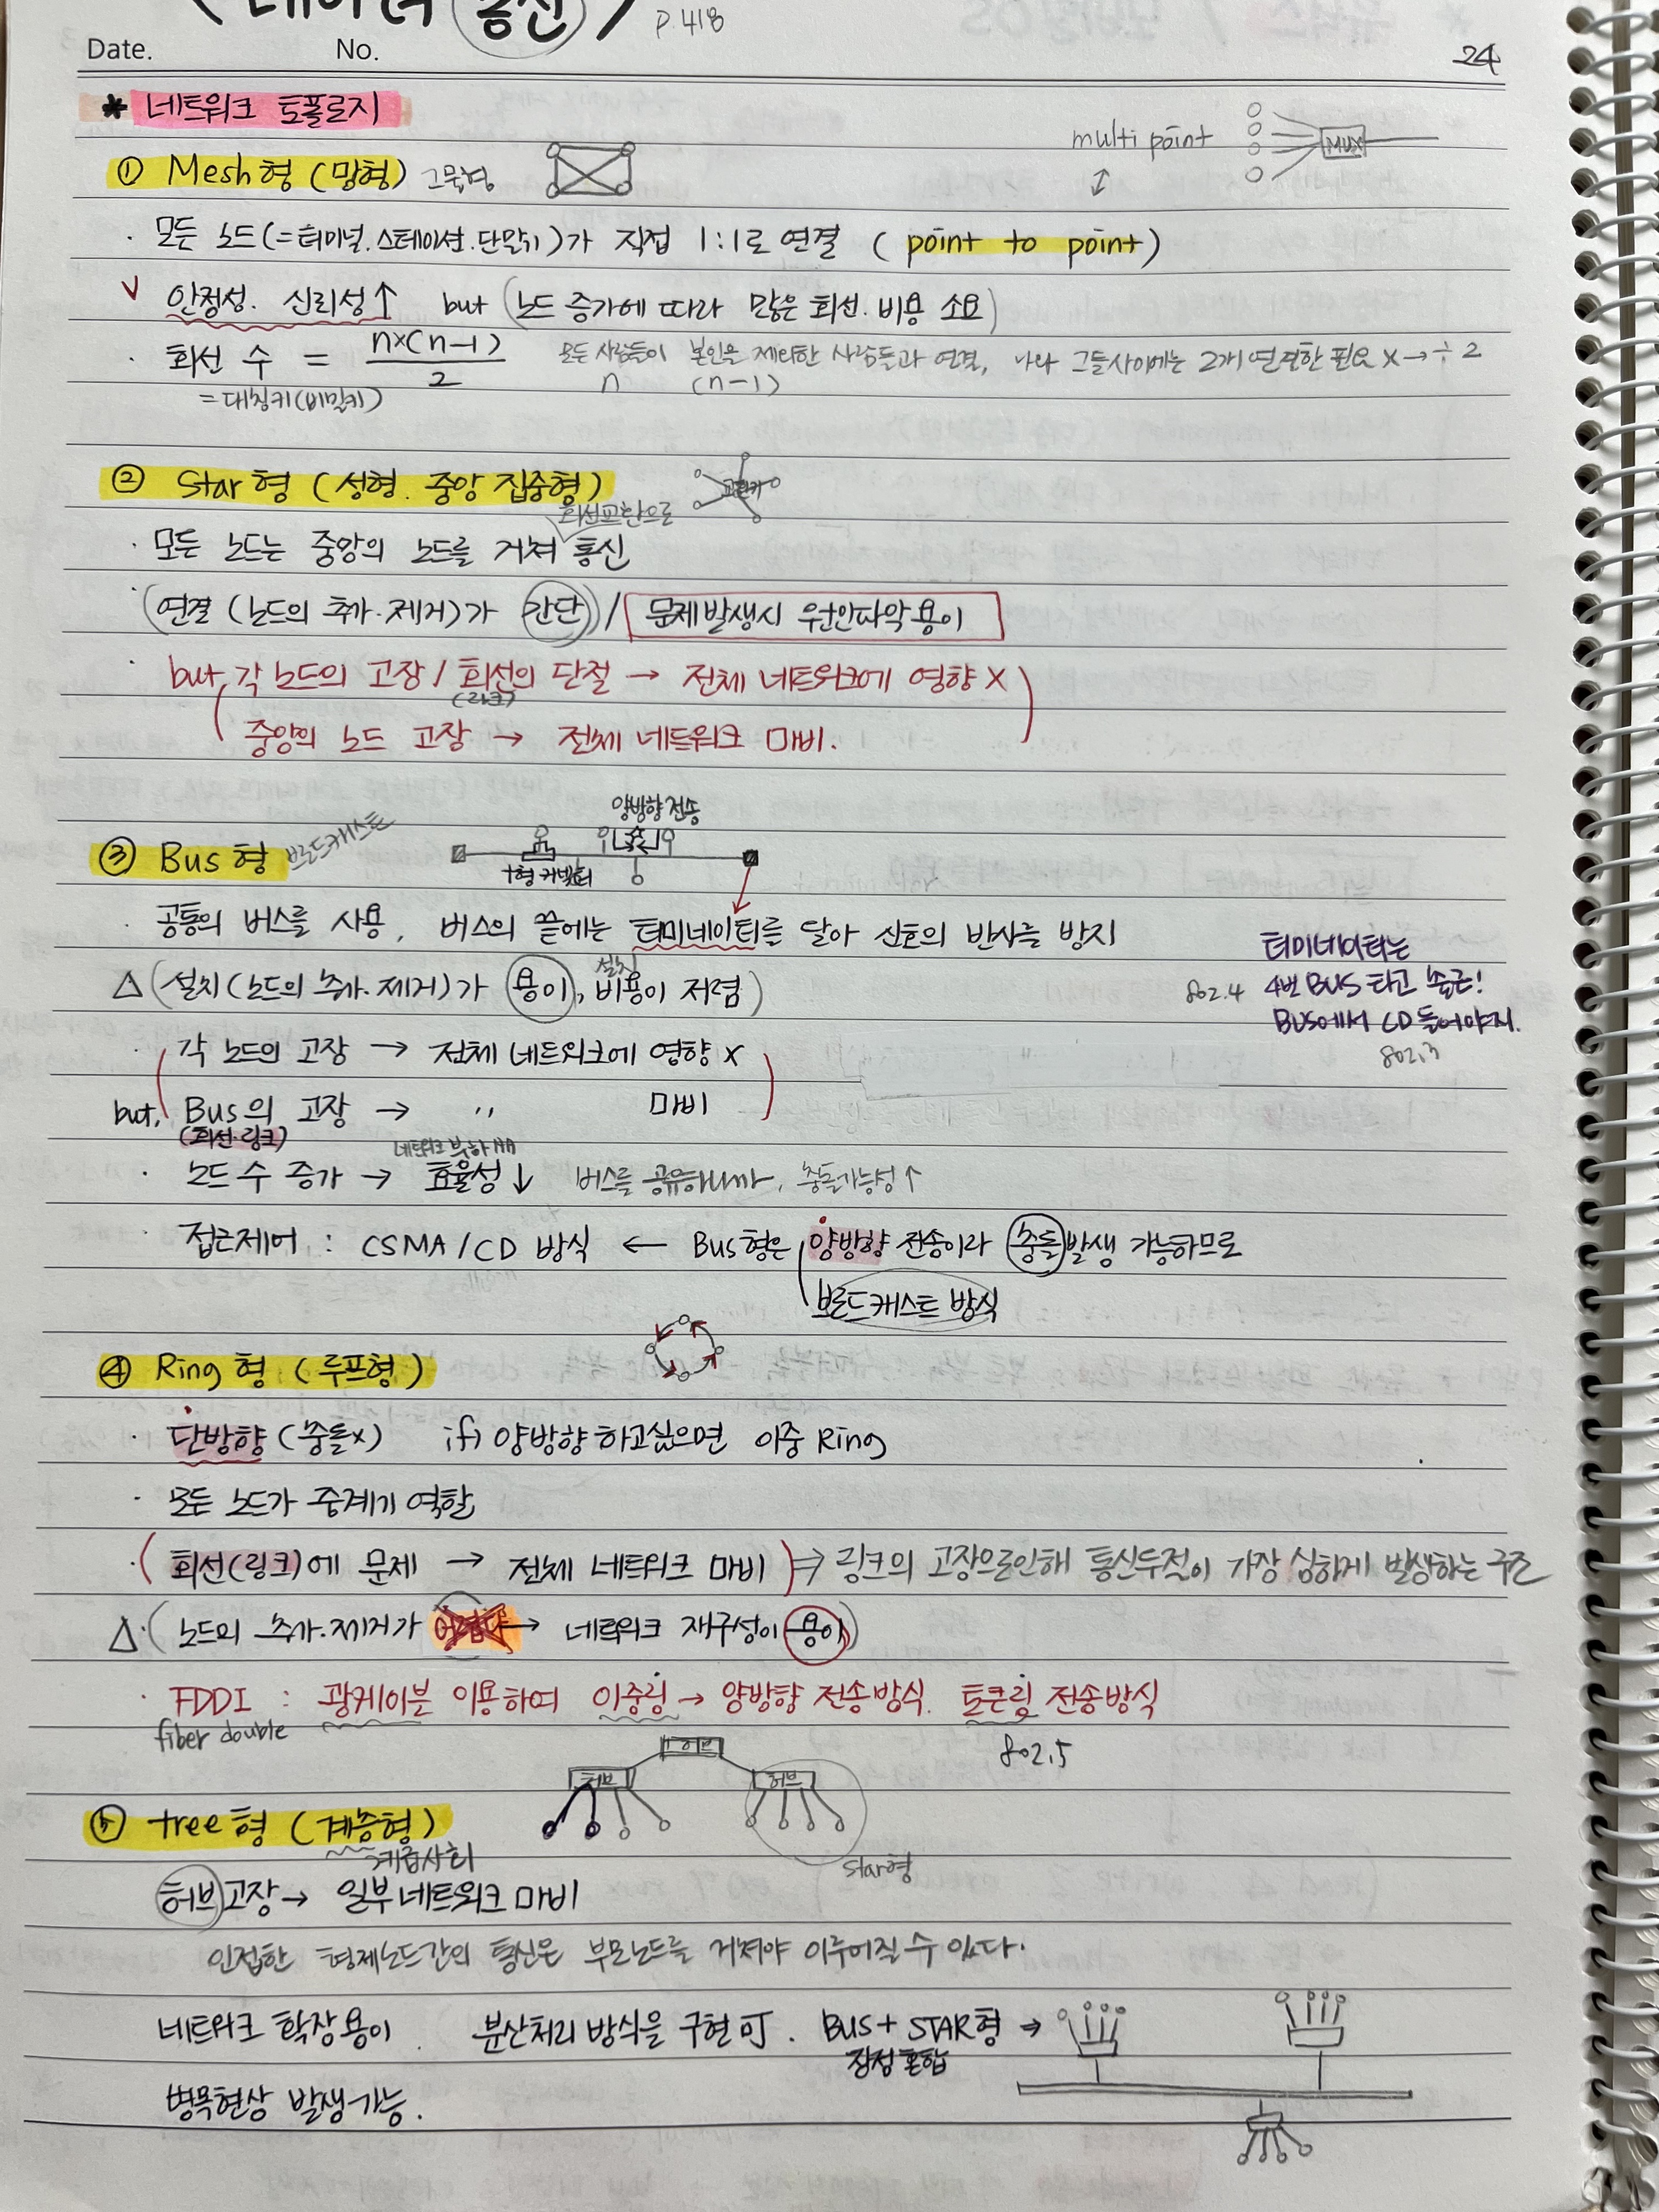 (데이터 통신) P.418
Date. No. 24
* 네트워크 토폴로지
multi point MUX
↕
① Mesh형 (망형) 그물형
· 모든 노드(=터미널.스테이션.단말기)가 직접 1:1로 연결 (point to point)
∨ 안정성. 신뢰성↑ but (노드 증가에 따라 많은 회선.비용 소요)
· 회선 수 = n×(n-1) / 2 모든 사람들이 본인을 제외한 사람들과 연결, 나와 그들사이에는 2개 연결할 필요 X → ÷2
= 대칭키(비밀키) n (n-1)
② Star형 (성형. 중앙 집중형) 교환기
회선교환으로
· 모든 노드는 중앙의 노드를 거쳐 통신
(연결 (노드의 추가.제거)가 간단) / 문제발생시 원인파악 용이
· but, 각 노드의 고장 / 회선의 단절 → 전체 네트워크에 영향 X
(링크)
중앙의 노드 고장 → 전체 네트워크 마비.
양방향 전송
③ Bus형 브로드캐스트
T형 커넥터
· 공통의 버스를 사용, 버스의 끝에는 터미네이터를 달아 신호의 반사를 방지
터미네이터는
802.4 4번 BUS 타고 출근!
BUS에서 CD 들어야지.
802.3
설치
△ (설치(노드의 추가.제거)가 용이, 비용이 저렴)
· 각 노드의 고장 → 전체 네트워크에 영향 X
but, Bus의 고장 → 〃 마비
(회선.링크)
네트워크 부하
· 노드 수 증가 → 효율성↓ 버스를 공유하니까, 충돌가능성↑
· 접근제어 : CSMA/CD 방식 ← Bus형은 양방향 전송이라 충돌 발생 가능하므로
브로드캐스트 방식
④ Ring형 (루프형)
· 단방향 (충돌x) if) 양방향 하고싶으면 이중 Ring
· 모든 노드가 중계기 역할
· (회선(링크)에 문제 → 전체 네트워크 마비) ⇒ 링크의 고장으로인해 통신두절이 가장 심하게 발생하는 구조
△·(노드의 추가.제거가 어렵다 → 네트워크 재구성이 용이)
· FDDI : 광케이블 이용하여 이중링 → 양방향 전송방식. 토큰링 전송방식
fiber double 802.5
허브
허브 허브
⑤ tree형 (계층형)
계급사회 star형
허브 고장 → 일부 네트워크 마비
인접한 형제노드간의 통신은 부모노드를 거쳐야 이루어질 수 있다.
네트워크 확장 용이. 분산처리 방식을 구현 可. BUS + STAR형 ⇒
장점 혼합
병목현상 발생 가능.